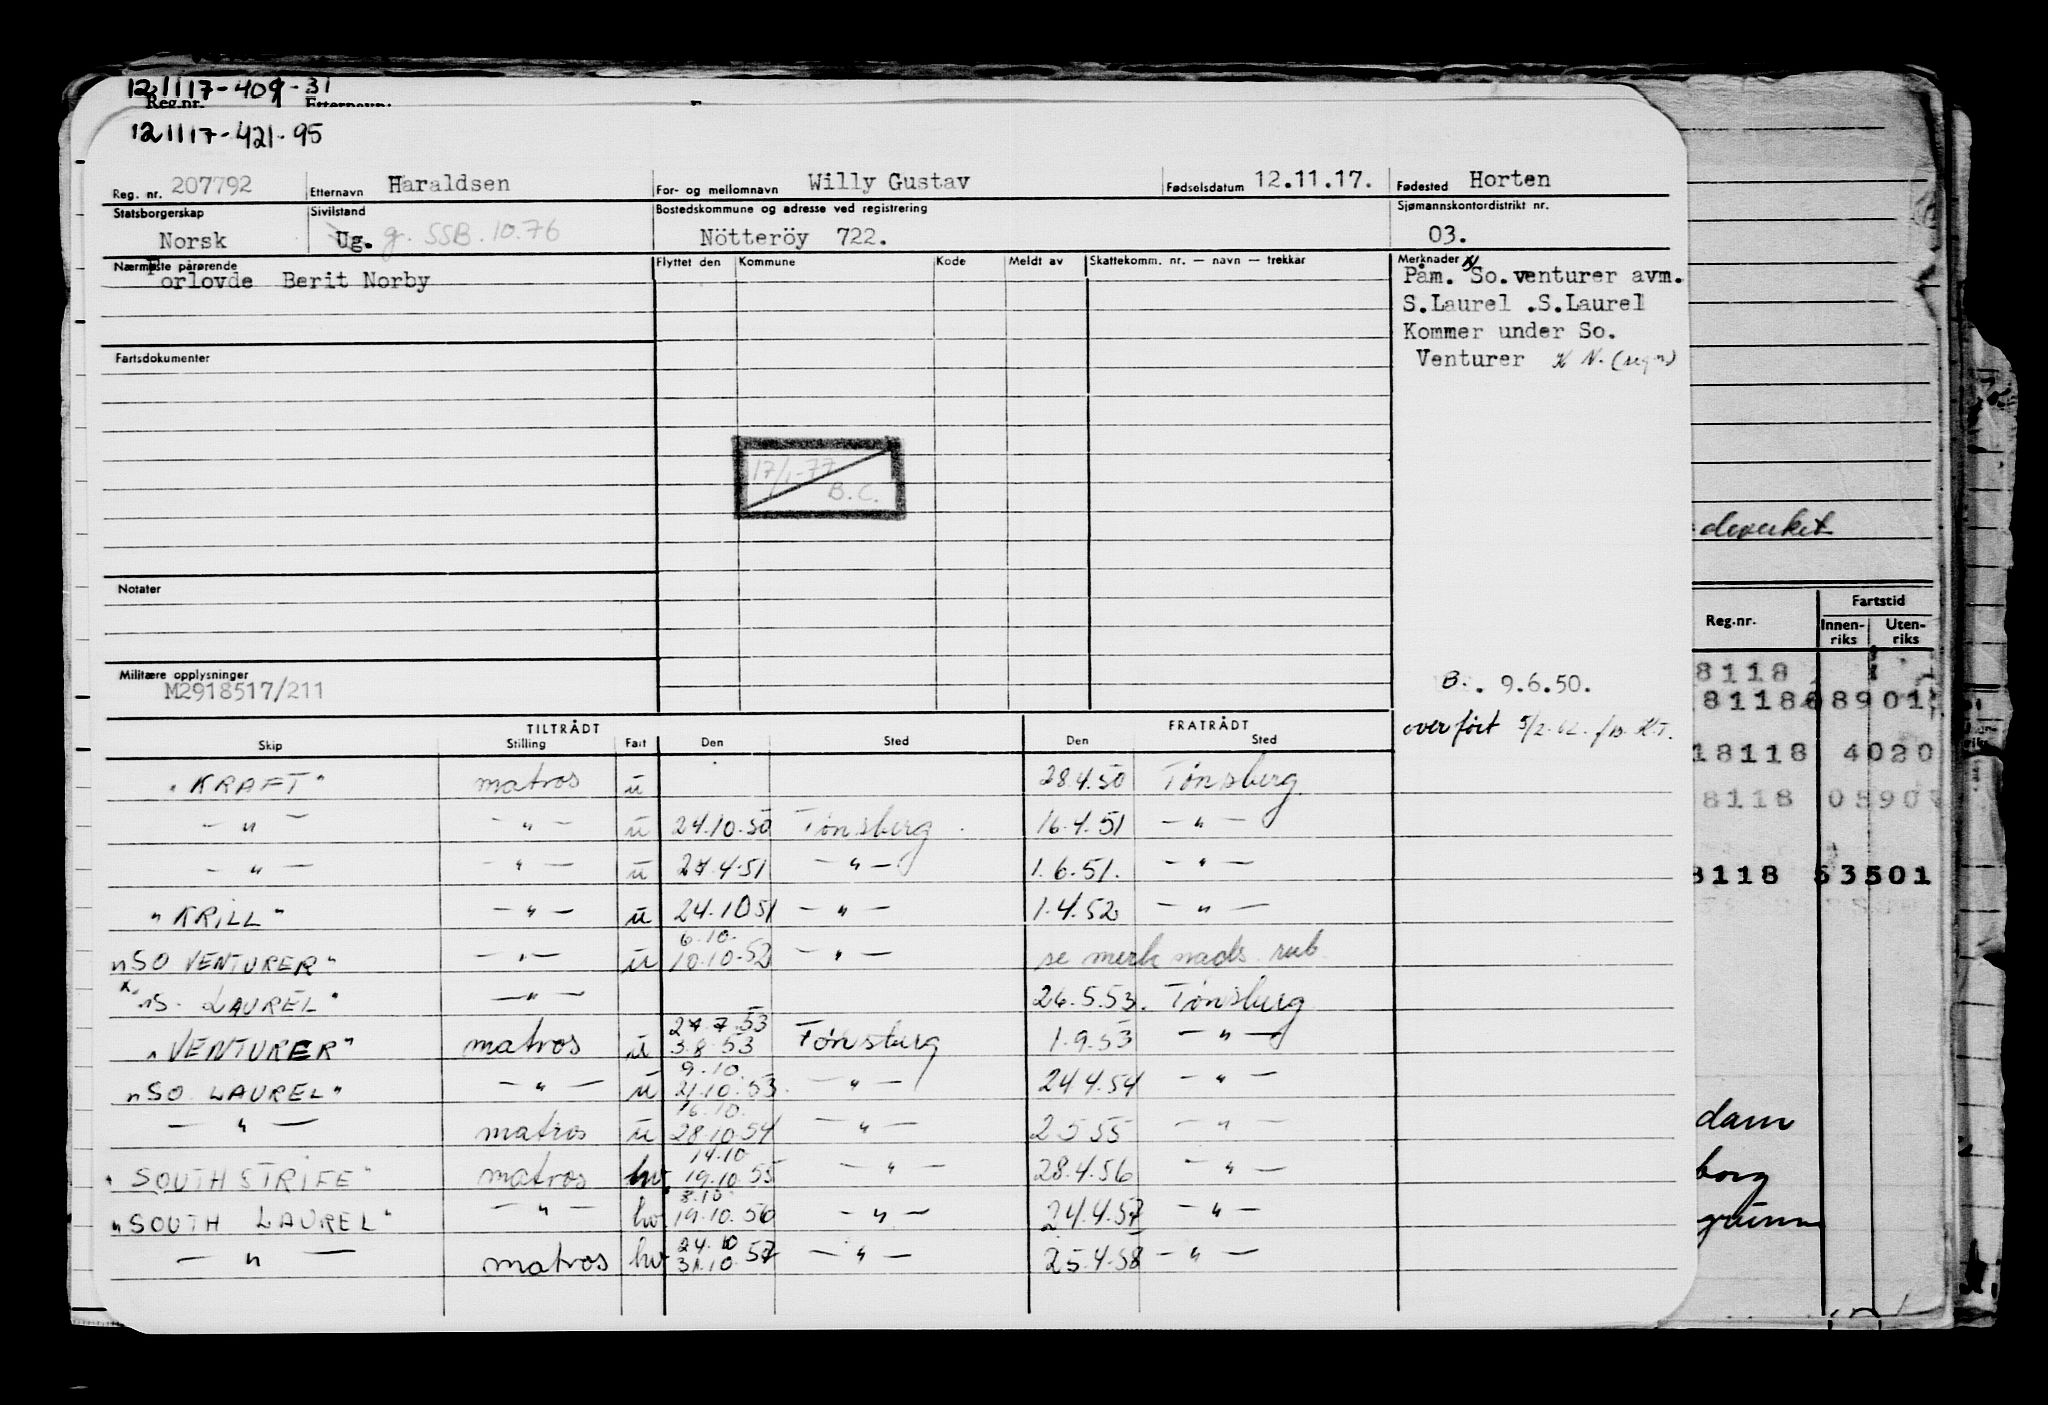 121117-409-31
Reg.nr. Etternavn:
121117-421-95
Reg. nr. 207792 Etternavn Haraldsen For- og mellomnavn Willy Gustav Fødselsdatum 12.11.17. Fødested Horten
Statsborgerskap Sivilstand Bostedskommune og adresse ved registrering Sjømannskontordistrikt nr.
Norsk Ug. g. SSB.10.76 Nötteröy 722. 03.
Nærmeste pårørende Flyttet den Kommune Kode Meldt av Skattekomm. nr. — navn — trekkar Merknader
Forlovde Berit Norby Påm. So.venturer avm.
S.Laurel .S.Laurel
Kommer under So.
Fartsdokumenter Venturer
17/1-77
B.C.
devirket
Notater
Fartstid
Reg.nr. Innen-riks Uten-riks
Militære opplysninger
M2918517/211
B. . 9.6.50.
8118
8118 08901
TILTRÅDT FRATRÅDT
overført 5/2-62.
Skip Stilling Fart Den Sted Den Sted
18118 4020
"KRAFT" matros u 28.4.50 Tønsberg
8118
— " — — " — u 24.10.50 Tønsberg 16.4.51 — " —
— " — — " — u 27.4.51 — " — 1.6.51. — " —
8118 53501
"KRILL" — " — u 24.10 51 — " — 1.4.52 — " —
6.10.
"SO VENTURER" — " — u 10.10.52 — " — se merknads. rub.
x "S. LAUREL" — " — 26.5.53. Tønsberg
27.7.53
"VENTURER" matros u 3.8.53 Tønsberg 1.9.53 — " —
9.10.
"SO. LAUREL" — " — u 21.10.53. — " — 24.4.54 — " —
16.10.
— " — matros u 28.10.54 — " — 2 5 55 — " —
dam
14.10
"SOUTH STRIFE" matros hv. 19.10.55 — " — 28.4.56 — " —
borg
8.10
"SOUTH LAUREL" — " — hv 19.10.56 — " — 24.4.57 — " —
24.10
— " — matros hv 31.10.57 — " — 25.4.58 — " —